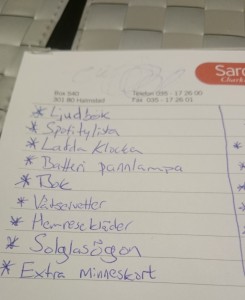 Sard
Clark
Box 540
301 80 Halmstad
Telefon 035 - 17 26 00
Fax 035 - 17 26 01
* Ljudbok
* Spotifylista
* Ladda klocka
* Batteri pannlampa
* Bok
* Våtservetter
* Hemresekläder
* Solglasögon
* Extra minneskort